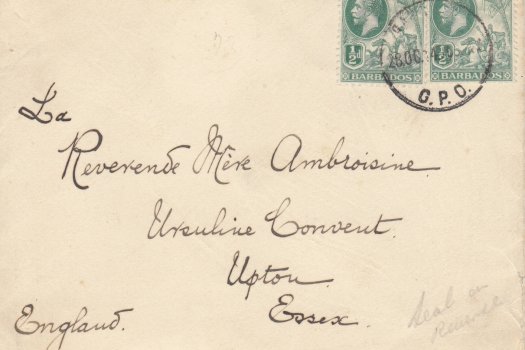 ½d ½d
BARBADOS BARBADOS
G.P.O.
La
Reverende Mère Ambroisine
Ursuline Convent.
Upton
Essex.
England.
Seal